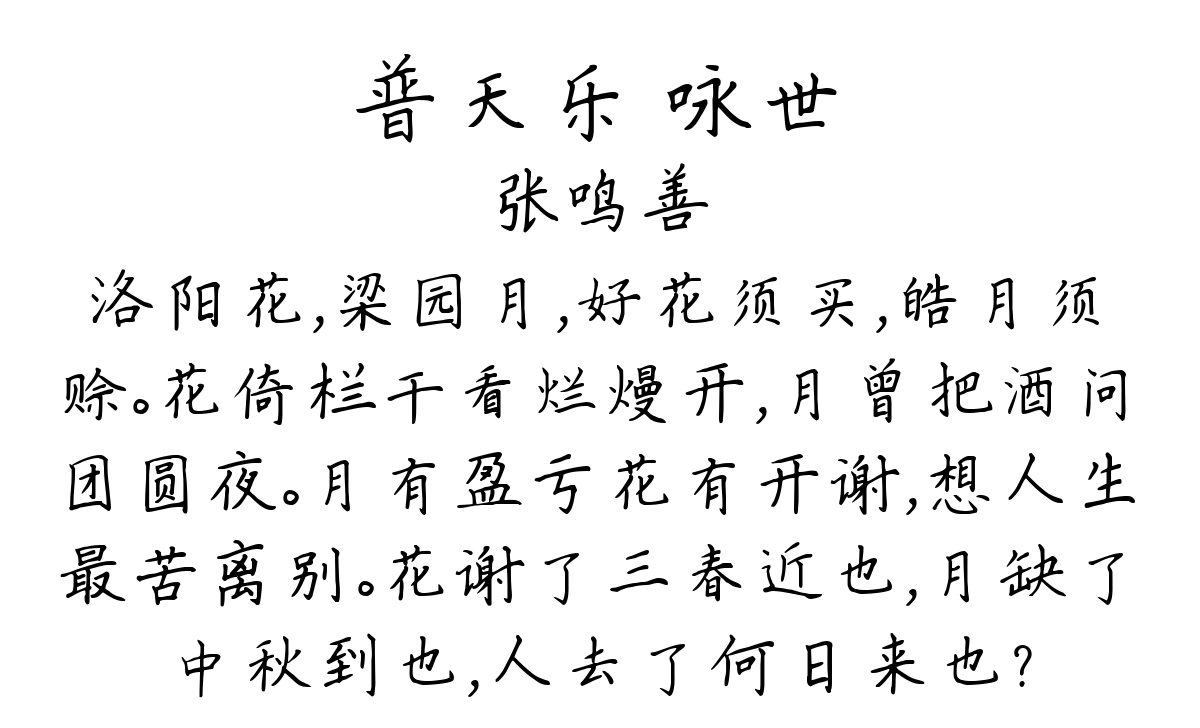 普天乐 咏世
张鸣善
洛阳花,梁园月,好花须买,皓月须
赊。花倚栏干看烂熳开,月曾把酒问
团圆夜。月有盈亏花有开谢,想人生
最苦离别。花谢了三春近也,月缺了
中秋到也,人去了何日来也?